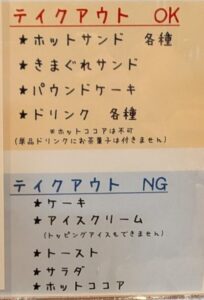 テイクアウト OK
★ホットサンド 各種
★きまぐれサンド
★パウンドケーキ
★ドリンク 各種
※ホットココアは不可
(単品ドリンクにお茶菓子は付きません)
テイクアウト NG
★ケーキ
★アイスクリーム
(トッピングアイスもできません)
★トースト
★サラダ
★ホットココア